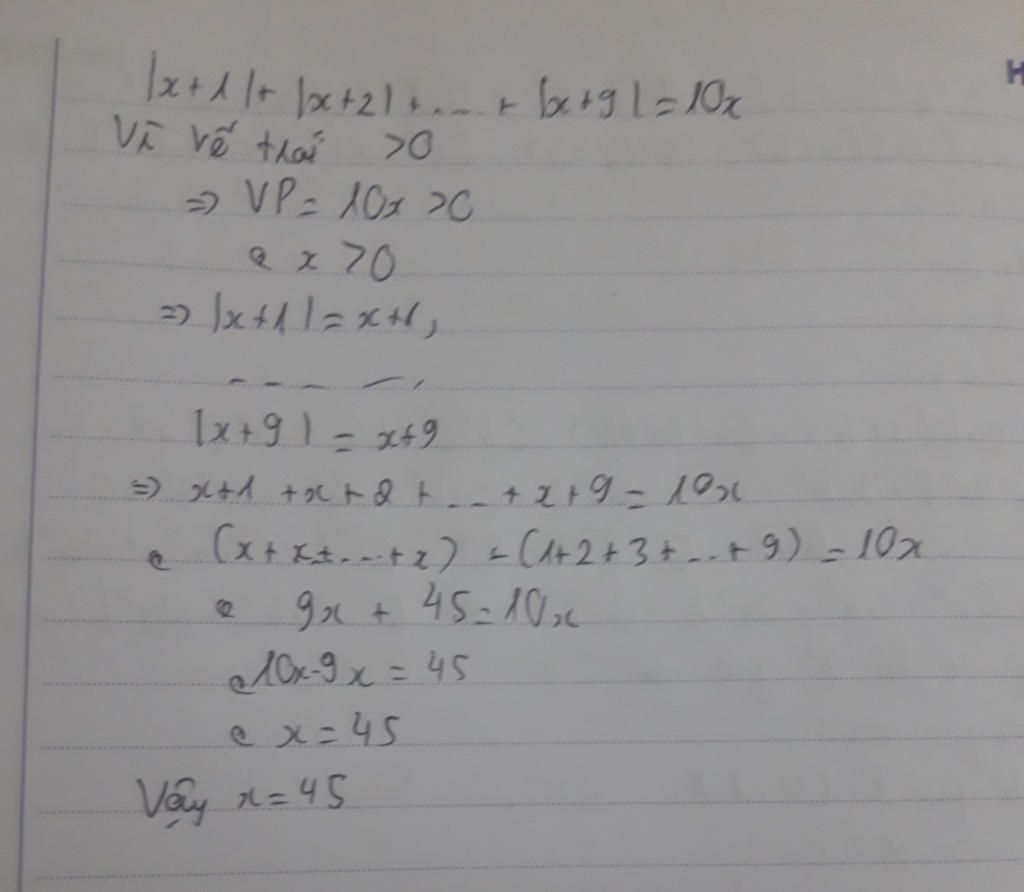 |x+1|+ |x+2| + ... + |x+9| = 10x
Vì vế trái >0
=> VP = 10x >0
⇔ x >0
=> |x+1| = x+1,
- - - - -,
|x+9| = x+9
=> x+1 +x+2 + ... + x+9 = 10x
⇔ (x+x+...+x) + (1+2+3+...+9) = 10x
⇔ 9x + 45 = 10x
⇔ 10x-9x = 45
⇔ x = 45
Vậy x = 45
H